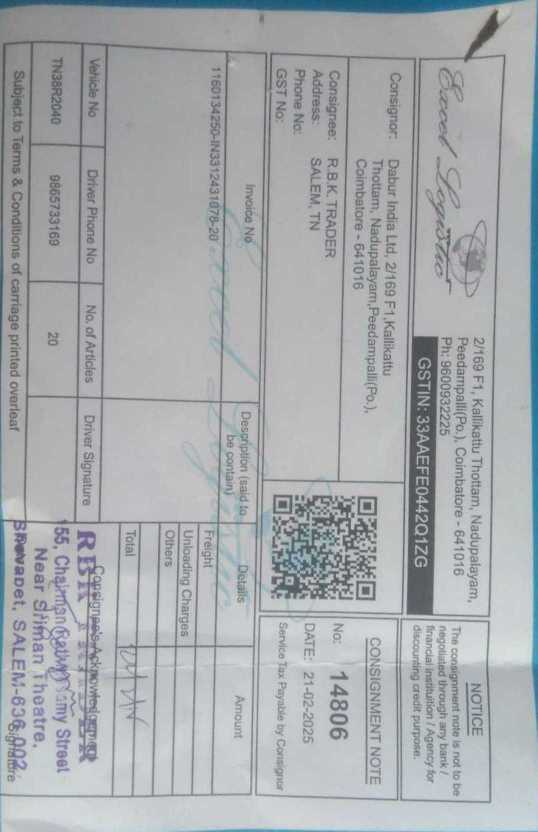 Excel Logistic
2/169 F1, Kallikattu Thottam, Nadupalayam,
Peedampalli(Po.), Coimbatore - 641016
Ph: 9600932225
GSTIN: 33AAEFE0442Q1ZG
NOTICE
The consignment note is not to be
negotiated through any bank /
financial instituition / Agency for
discounting credit purpose.
Consignor: Dabur India Ltd, 2/169 F1,Kallikattu
Thottam, Nadupalayam,Peedampalli(Po.),
Coimbatore - 641016
Consignee: R.B.K. TRADER
Address: SALEM, TN
Phone No:
GST No:
CONSIGNMENT NOTE
No: 14806
DATE: 21-02-2025
Service Tax Payable by Consignor
Invoice No
Description (said to
be contain)
Details
Amount
1160134250-IN3312431078-20
Excel Logistic
Freight
Unloading Charges
Others
Total
Vehicle No
Driver Phone No
No. of Articles
Driver Signature
TN38R2040
9865733169
20
Consignee's Acknowledgement
RBK TRADER
155, Chairman Street
Near Sriman Theatre,
Shevapet, SALEM-636 002
Signature
Subject to Terms & Conditions of carriage printed overleaf